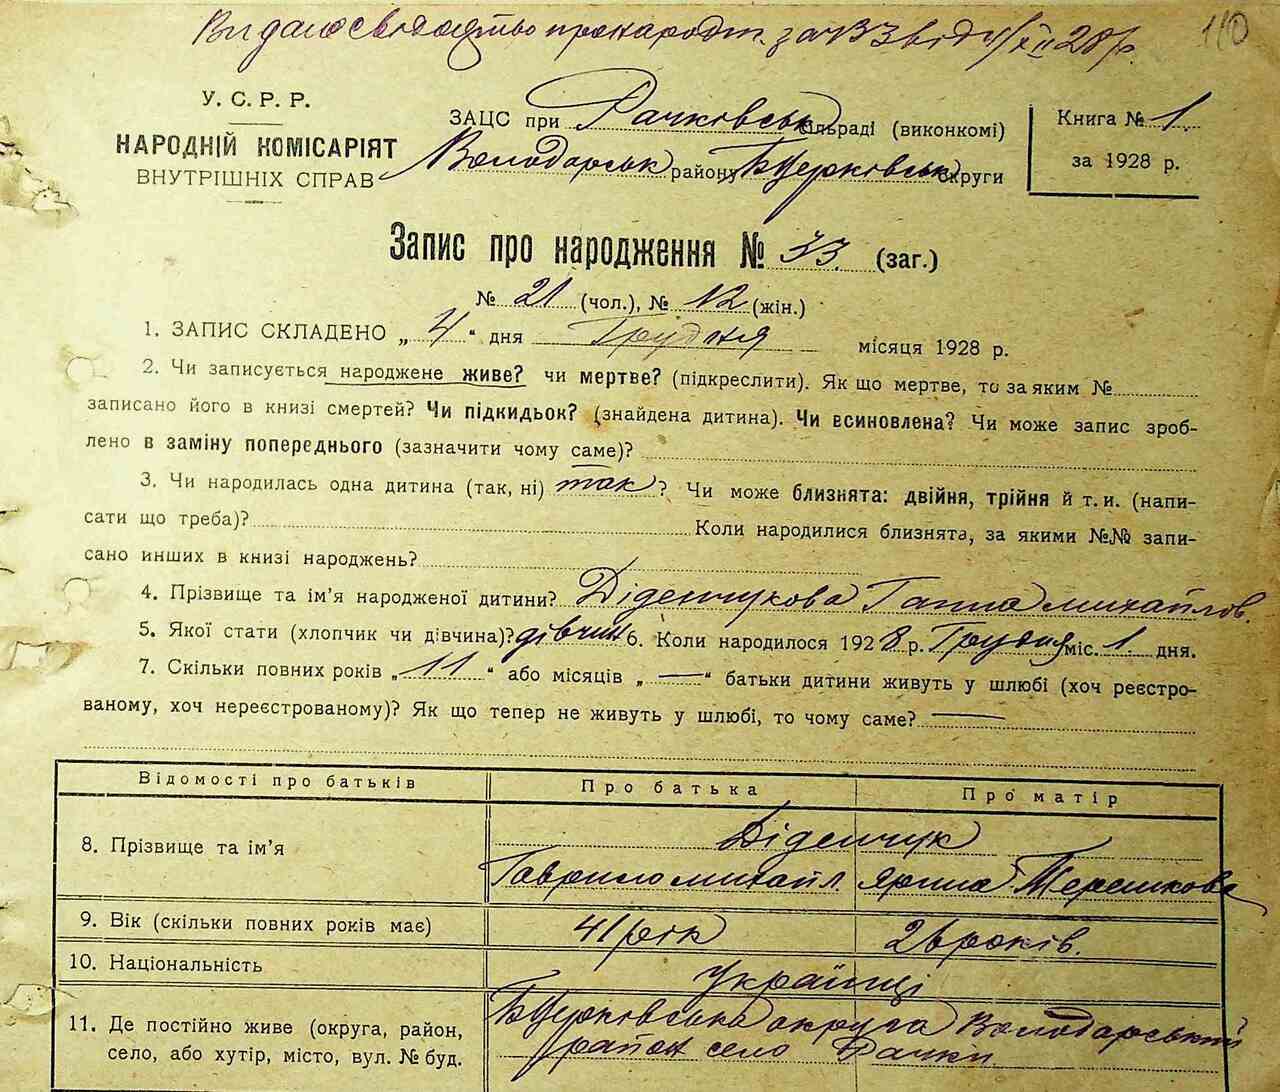 Видано свідоцтво про народж. за № 33 від 4/XII 28 р.
110
У. С. Р. Р.
НАРОДНІЙ КОМІСАРІЯТ
ВНУТРІШНІХ СПРАВ
ЗАЦС при Рачковськ сільраді (виконкомі)
Володарськ району БЦерковськ округи
Книга № 1.
за 1928 р.
Запис про народження № 33. (заг.)
№ 21 (чол.), № 12 (жін.)
1. ЗАПИС СКЛАДЕНО „ 4 “ дня Грудня місяця 1928 р.
2. Чи записується народжене живе? чи мертве? (підкреслити). Як що мертве, то за яким №
записано його в книзі смертей? Чи підкидьок? (знайдена дитина). Чи всиновлена? Чи може запис зроб-
лено в заміну попереднього (зазначити чому саме)?
3. Чи народилась одна дитина (так, ні) так? Чи може близнята: двійня, трійня й т. и. (напи-
сати що треба)? Коли народилися близнята, за якими №№ запи-
сано инших в книзі народжень?
4. Прізвище та ім'я народженої дитини? Діденчукова Ганна михайлов.
5. Якої стати (хлопчик чи дівчина)? дівчин 6. Коли народилося 1928 р. Грудня міс. 1. дня.
7. Скільки повних років „ 11 “ або місяців „ — “ батьки дитини живуть у шлюбі (хоч реєстро-
ваному, хоч нереєстрованому)? Як що тепер не живуть у шлюбі, то чому саме? —
Відомості про батьків Про батька Про матір
8. Прізвище та ім'я Діденчук
Гаврило михайл. ярина Терешкова
9. Вік (скільки повних років має) 41 рік 26 років.
10. Національність Українці
11. Де постійно живе (округа, район, БЦерковська округа Володарський
село, або хутір, місто, вул. № буд. район село Рачки